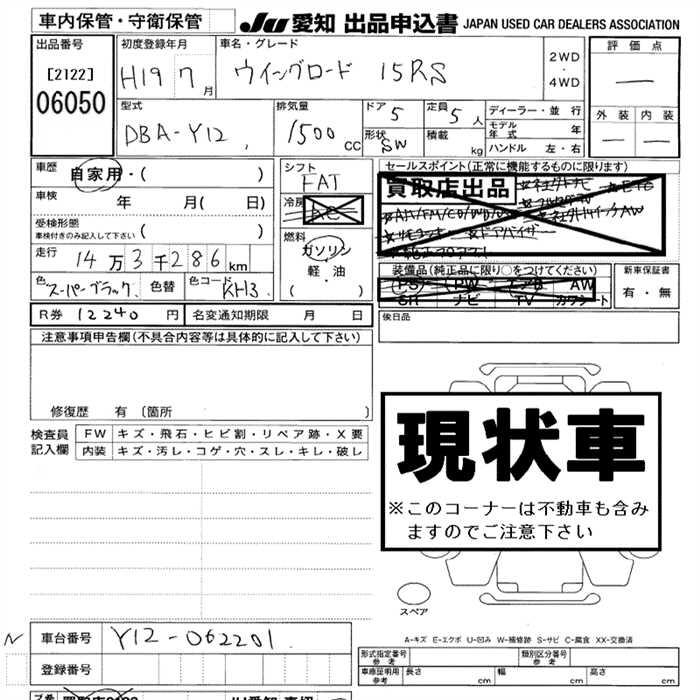 車内保管・守衛保管
JU 愛知 出品申込書 JAPAN USED CAR DEALERS ASSOCIATION
出品番号
[2122]
06050
初度登録年月
H19 7 月
車名・グレード
ウイングロード 15RS
2WD
・
4WD
評価点
—
外装 内装
— —
型式
DBA-Y12
排気量
1500 CC
ドア 5
形状 SW
定員 5 人
積載 kg
ディーラー・並行
モデル年式 年
ハンドル 左・右
車歴 自家用・( )
車検 年 月( 日)
受検形態
車検付きのみ記入して下さい ( )
走行 14万3千286km
色 スーパーブラック 色替 色コード KH3
シフト
FAT
冷房
AC
燃料
ガソリン
軽・油
( ・ )
セールスポイント(正常に機能するものに限ります)
買取店出品
装備品(純正品に限り○をつけてください)
PS PW エアB AW
SR ナビ TV カワシート
新車保証書
有・無
R券 12240 円 名変通知期限 月 日
後日品
注意事項申告欄(不具合内容等は具体的に記入して下さい)
修復歴 有 〔箇所 〕
検査員記入欄
FW キズ・飛石・ヒビ割・リペア跡・X要
内装 キズ・汚レ・コゲ・穴・スレ・キレ・破レ
現状車
※このコーナーは不動車も含み
ますのでご注意下さい
スペア
A-キズ E-エクボ U-凹み W-補修跡 S-サビ C-腐食 XX-交換済
N 車台番号 Y12-062201
登録番号
形式指定番号 参考
類別区分番号 参考
車庫証明用 参考 長さ cm 幅 cm 高さ cm